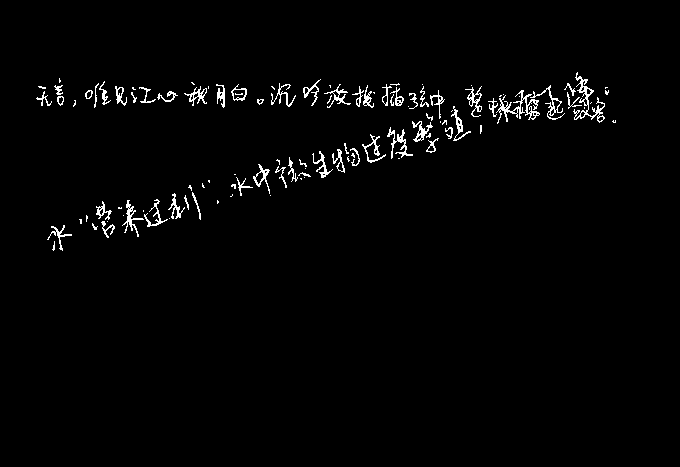 无言，唯见江心秋月白。沉吟放拨插弦中，整
水“营养过剩”，水中微生物过度繁殖，